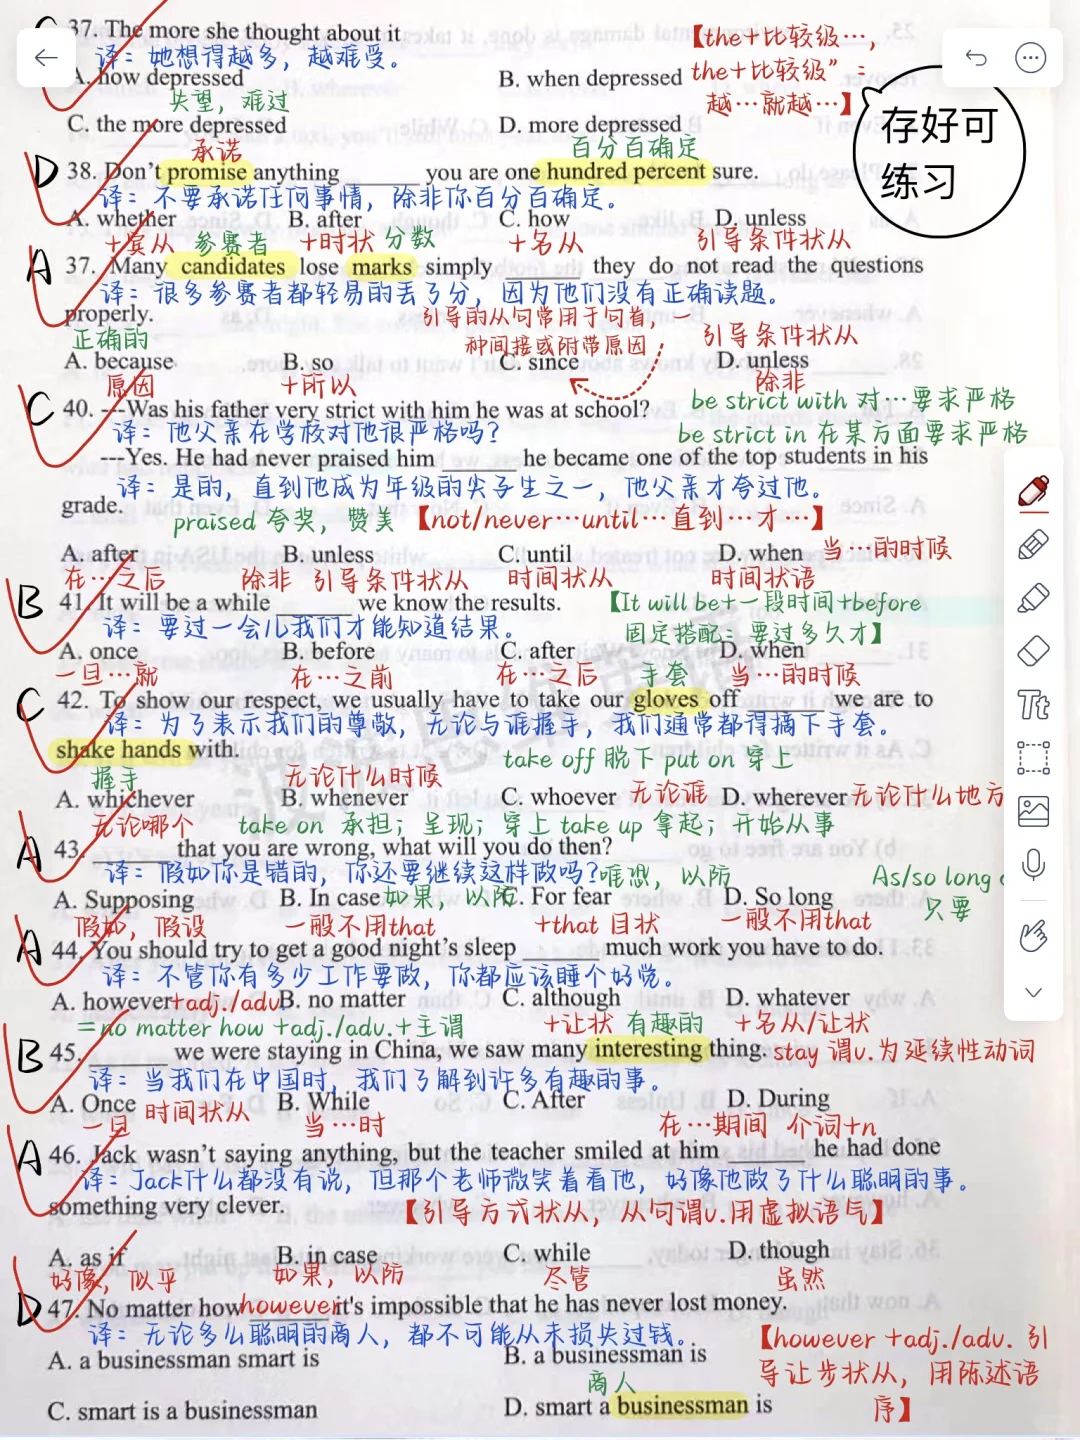 37. The more she thought about it
【the+比较级…,
译：她想得越多，越难受。
A. how depressed
B. when depressed
the+比较级”：
失望，难过
越…就越…】
C. the more depressed
D. more depressed
存好可
练习
承诺
百分百确定
D 38. Don't promise anything ______ you are one hundred percent sure.
译：不要承诺任何事情，除非你百分百确定。
A. whether
B. after
C. how
D. unless
+宾从
参赛者
+时状
分数
+名从
引导条件状从
A 37. Many candidates lose marks simply ______ they do not read the questions
译：很多参赛者都轻易的丢了分，因为他们没有正确读题。
properly.
引导的从句常用于句首，一
种间接或附带原因
引导条件状从
正确的
A. because
B. so
C. since
D. unless
原因
+所以
除非
C 40. ---Was his father very strict with him he was at school?
be strict with 对…要求严格
译：他父亲在学校对他很严格吗？
be strict in 在某方面要求严格
---Yes. He had never praised him ______ he became one of the top students in his
译：是的，直到他成为年级的尖子生之一，他父亲才夸过他。
grade.
praised 夸奖，赞美
【not/never…until…直到…才…】
A. after
B. unless
C. until
D. when
当…的时候
在…之后
除非 引导条件状从
时间状从
时间状语
B 41. It will be a while ______ we know the results.
【It will be+一段时间+before
译：要过一会儿我们才能知道结果。
固定搭配：要过多久才】
A. once
B. before
C. after
D. when
一旦…就
在…之前
在…之后
手套
当…的时候
C 42. To show our respect, we usually have to take our gloves off ______ we are to
译：为了表示我们的尊敬，无论与谁握手，我们通常都得摘下手套。
shake hands with.
take off 脱下 put on 穿上
握手
无论什么时候
A. whichever
B. whenever
C. whoever
无论谁
D. wherever
无论什么地方
无论哪个
take on 承担；呈现；穿上 take up 拿起；开始从事
A 43. ______ that you are wrong, what will you do then?
译：假如你是错的，你还要继续这样做吗？
唯恐，以防
As/so long
只要
A. Supposing
B. In case
如果，以防
C. For fear
D. So long
假如，假设
一般不用that
+that 目状
一般不用that
A 44. You should try to get a good night's sleep ______ much work you have to do.
译：不管你有多少工作要做，你都应该睡个好觉。
A. however
+adj./adv
B. no matter
C. although
D. whatever
=no matter how +adj./adv.+主谓
+让状
有趣的
+名从/让状
B 45. ______ we were staying in China, we saw many interesting thing.
stay 谓v.为延续性动词
译：当我们在中国时，我们了解到许多有趣的事。
A. Once
时间状从
B. While
C. After
D. During
一旦
当…时
在…期间 介词+n
A 46. Jack wasn't saying anything, but the teacher smiled at him ______ he had done
译：Jack什么都没有说，但那个老师微笑着看他，好像他做了什么聪明的事。
something very clever.
【引导方式状从，从句谓v.用虚拟语气】
A. as if
B. in case
C. while
D. though
好像，似乎
如果，以防
尽管
虽然
D 47. No matter how ______ it's impossible that he has never lost money.
however
译：无论多么聪明的商人，都不可能从未损失过钱。
【however +adj./adv. 引
导让步状从，用陈述语
序】
A. a businessman smart is
B. a businessman is
商人
C. smart is a businessman
D. smart a businessman is
Tt